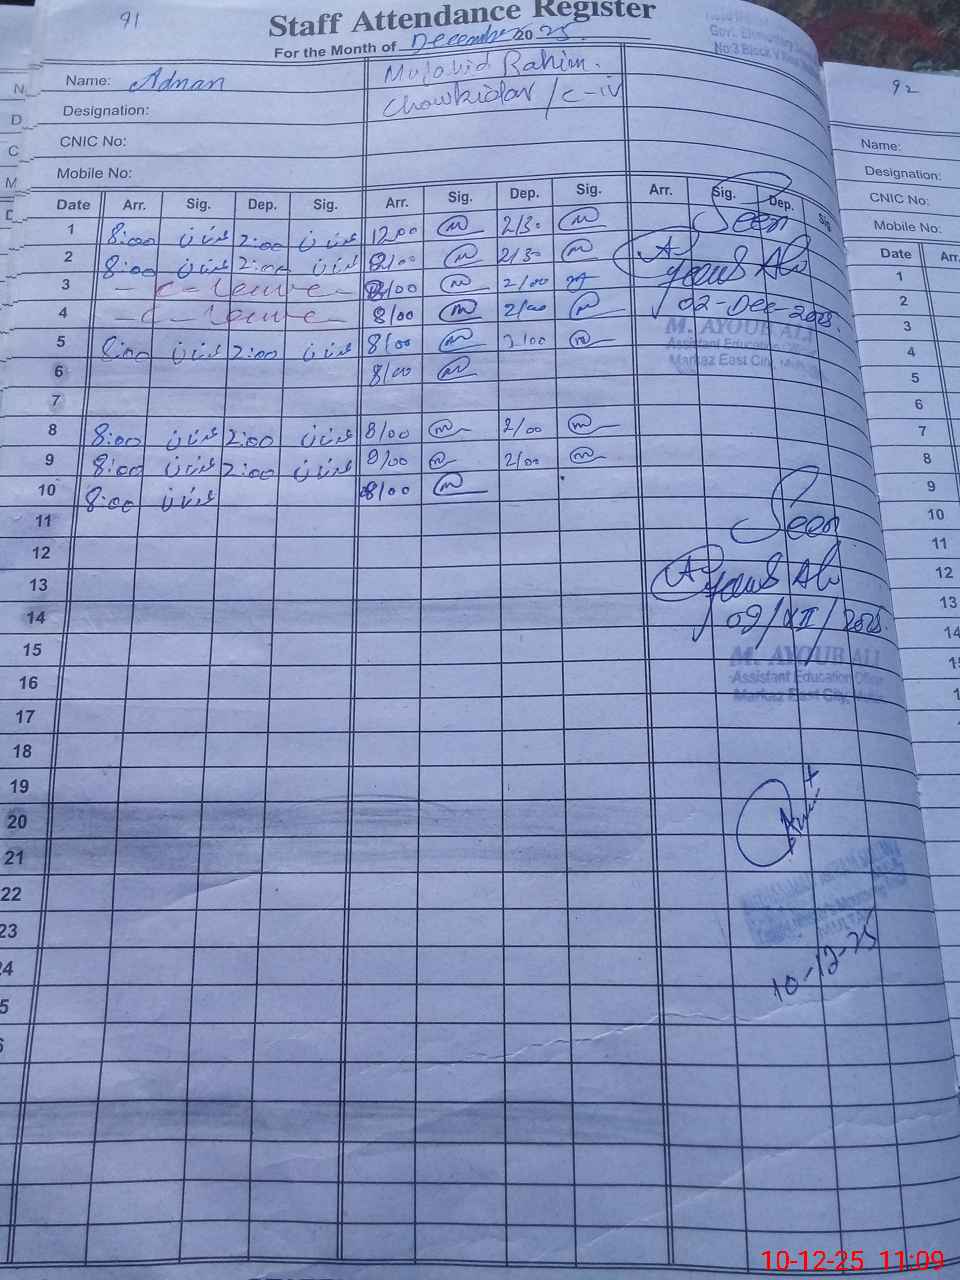 91
Staff Attendance Register
For the Month of December 2025.
Name: Adnan Mujahid Rahim.
Designation: Chowkidar / C-iv
CNIC No:
Mobile No:
Date Arr. Sig. Dep. Sig. Arr. Sig. Dep. Sig. Arr. Sig. Dep. Sig.
1 8:00 عدنان 2:00 عدنان 1200 2/30
2 8:00 عدنان 2:00 عدنان 8/00 2/30
3 - C - Leave - 8/00 2/00
4 - C - Leave - 8/00 2/00
5 8:00 عدنان 2:00 عدنان 8/00 2/00
6 8/00
7
8 8:00 عدنان 2:00 عدنان 8/00 2/00
9 8:00 عدنان 2:00 عدنان 8/00 2/00
10 8:00 عدنان 8/00
11
12
13
14
15
16
17
18
19
20
21
22
23
24
5
6
Seen
Ayoub Ali
02-Dec-2025.
M. AYOUB ALI
Assistant Education Officer
Markaz East City,
Seen
Ayoub Ali
09/XII/2025.
M. AYOUB ALI
Assistant Education Officer
Markaz East City,
10-12-25
92
Name:
Designation:
CNIC No:
Mobile No:
Date Arr.
1
2
3
4
5
6
7
8
9
10
11
12
13
14
10-12-25 11:09